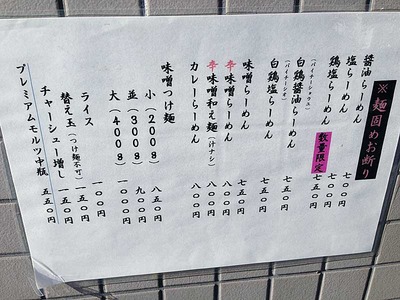 ※麺固めお断り
醤油らーめん 七〇〇円
塩らーめん 七〇〇円
鶏塩らーめん 数量限定 七五〇円
(パイチージャンユ)
白鶏醤油らーめん 七五〇円
(パイチーシオ)
白鶏塩らーめん 七五〇円
味噌らーめん 七五〇円
辛味噌らーめん 八〇〇円
辛味噌和え麺(汁ナシ) 八〇〇円
カレーらーめん 八〇〇円
味噌つけ麺
小(200g) 八五〇円
並(300g) 九〇〇円
大(400g) 一〇〇〇円
ライス 一〇〇円
替え玉(つけ麺不可) 一五〇円
チャーシュー増し 一五〇円
プレミアムモルツ中瓶 五五〇円